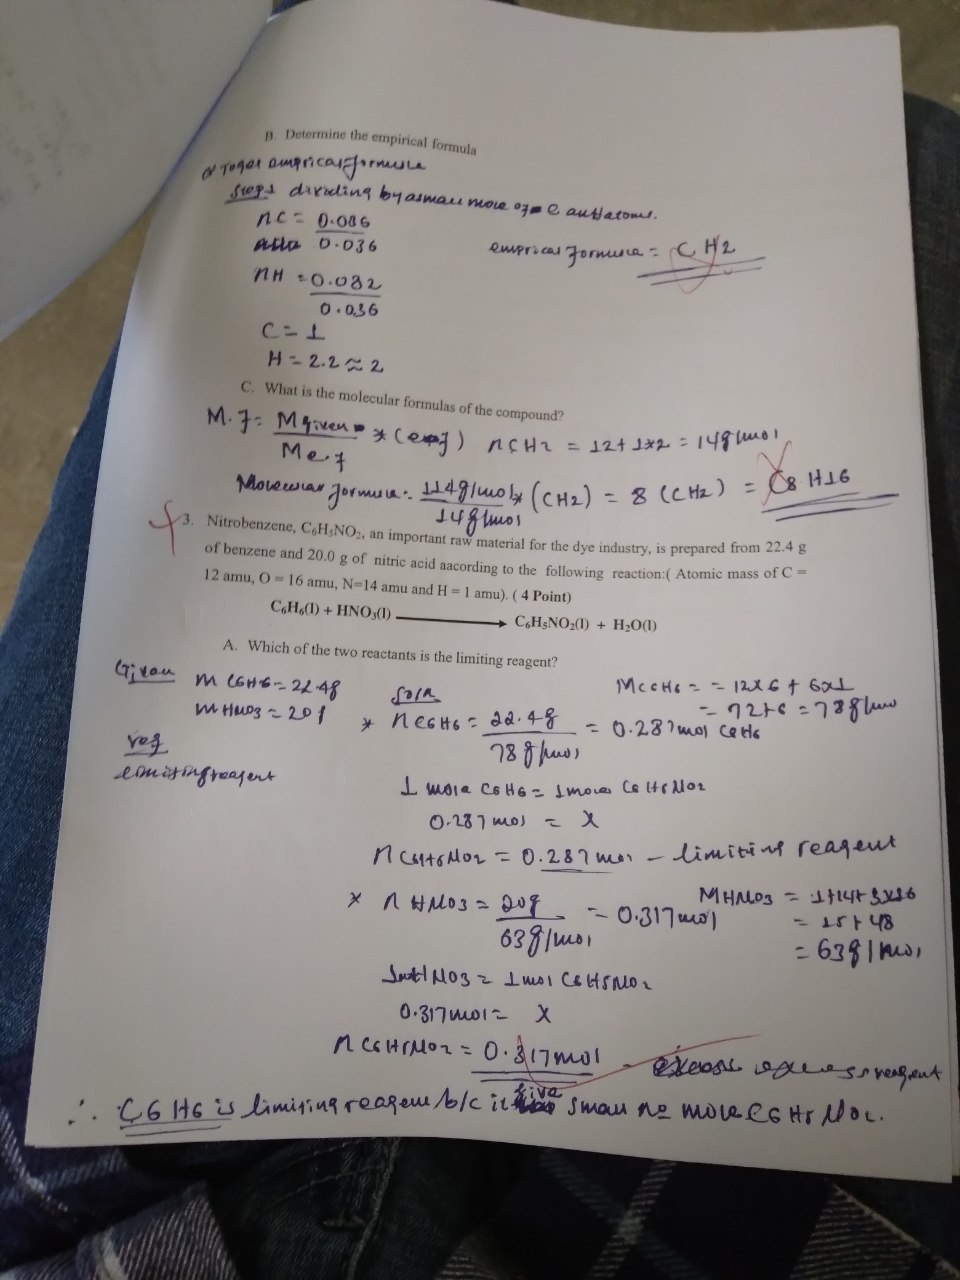 B. Determine the empirical formula
To get empricas formula
Step1 dividing by a small mole of C and H atoms.
nC = 0.036
0.036
empricas formula = CH2
nH = 0.082
0.036
C = 1
H = 2.2 ≈ 2
C. What is the molecular formulas of the compound?
M.f = Mgiven * (emf) nCH2 = 12 + 1x2 = 14g/mol
Mef
Molecular formula = 114g/mol * (CH2) = 8 (CH2) = C8 H16
14g/mol
3. Nitrobenzene, C6H5NO2, an important raw material for the dye industry, is prepared from 22.4 g
of benzene and 20.0 g of nitric acid aacording to the following reaction:( Atomic mass of C =
12 amu, O = 16 amu, N=14 amu and H = 1 amu). ( 4 Point)
C6H6(l) + HNO3(l) → C6H5NO2(l) + H2O(l)
A. Which of the two reactants is the limiting reagent?
Given m C6H6 = 22.4g Soln MC6H6 = = 12x6 + 6x1
m HNO3 = 20g = 72+6 = 78g/mol
* nC6H6 = 22.4g = 0.287 mol C6H6
78g/mol
req
limiting reagent
1 mole C6H6 = 1 mole C6H5NO2
0.287 mol = x
nC6H5NO2 = 0.287 mol - limiting reagent
* nHNO3 = 20g = 0.317 mol MHNO3 = 1+14+3x16
63g/mol = 15+48
= 63g/mol
1mol HNO3 = 1mol C6H5NO2
0.317 mol = x
nC6H5NO2 = 0.317mol - excess reagent
∴ C6H6 is limiting reagent b/c it give small no mole C6H5NO2.